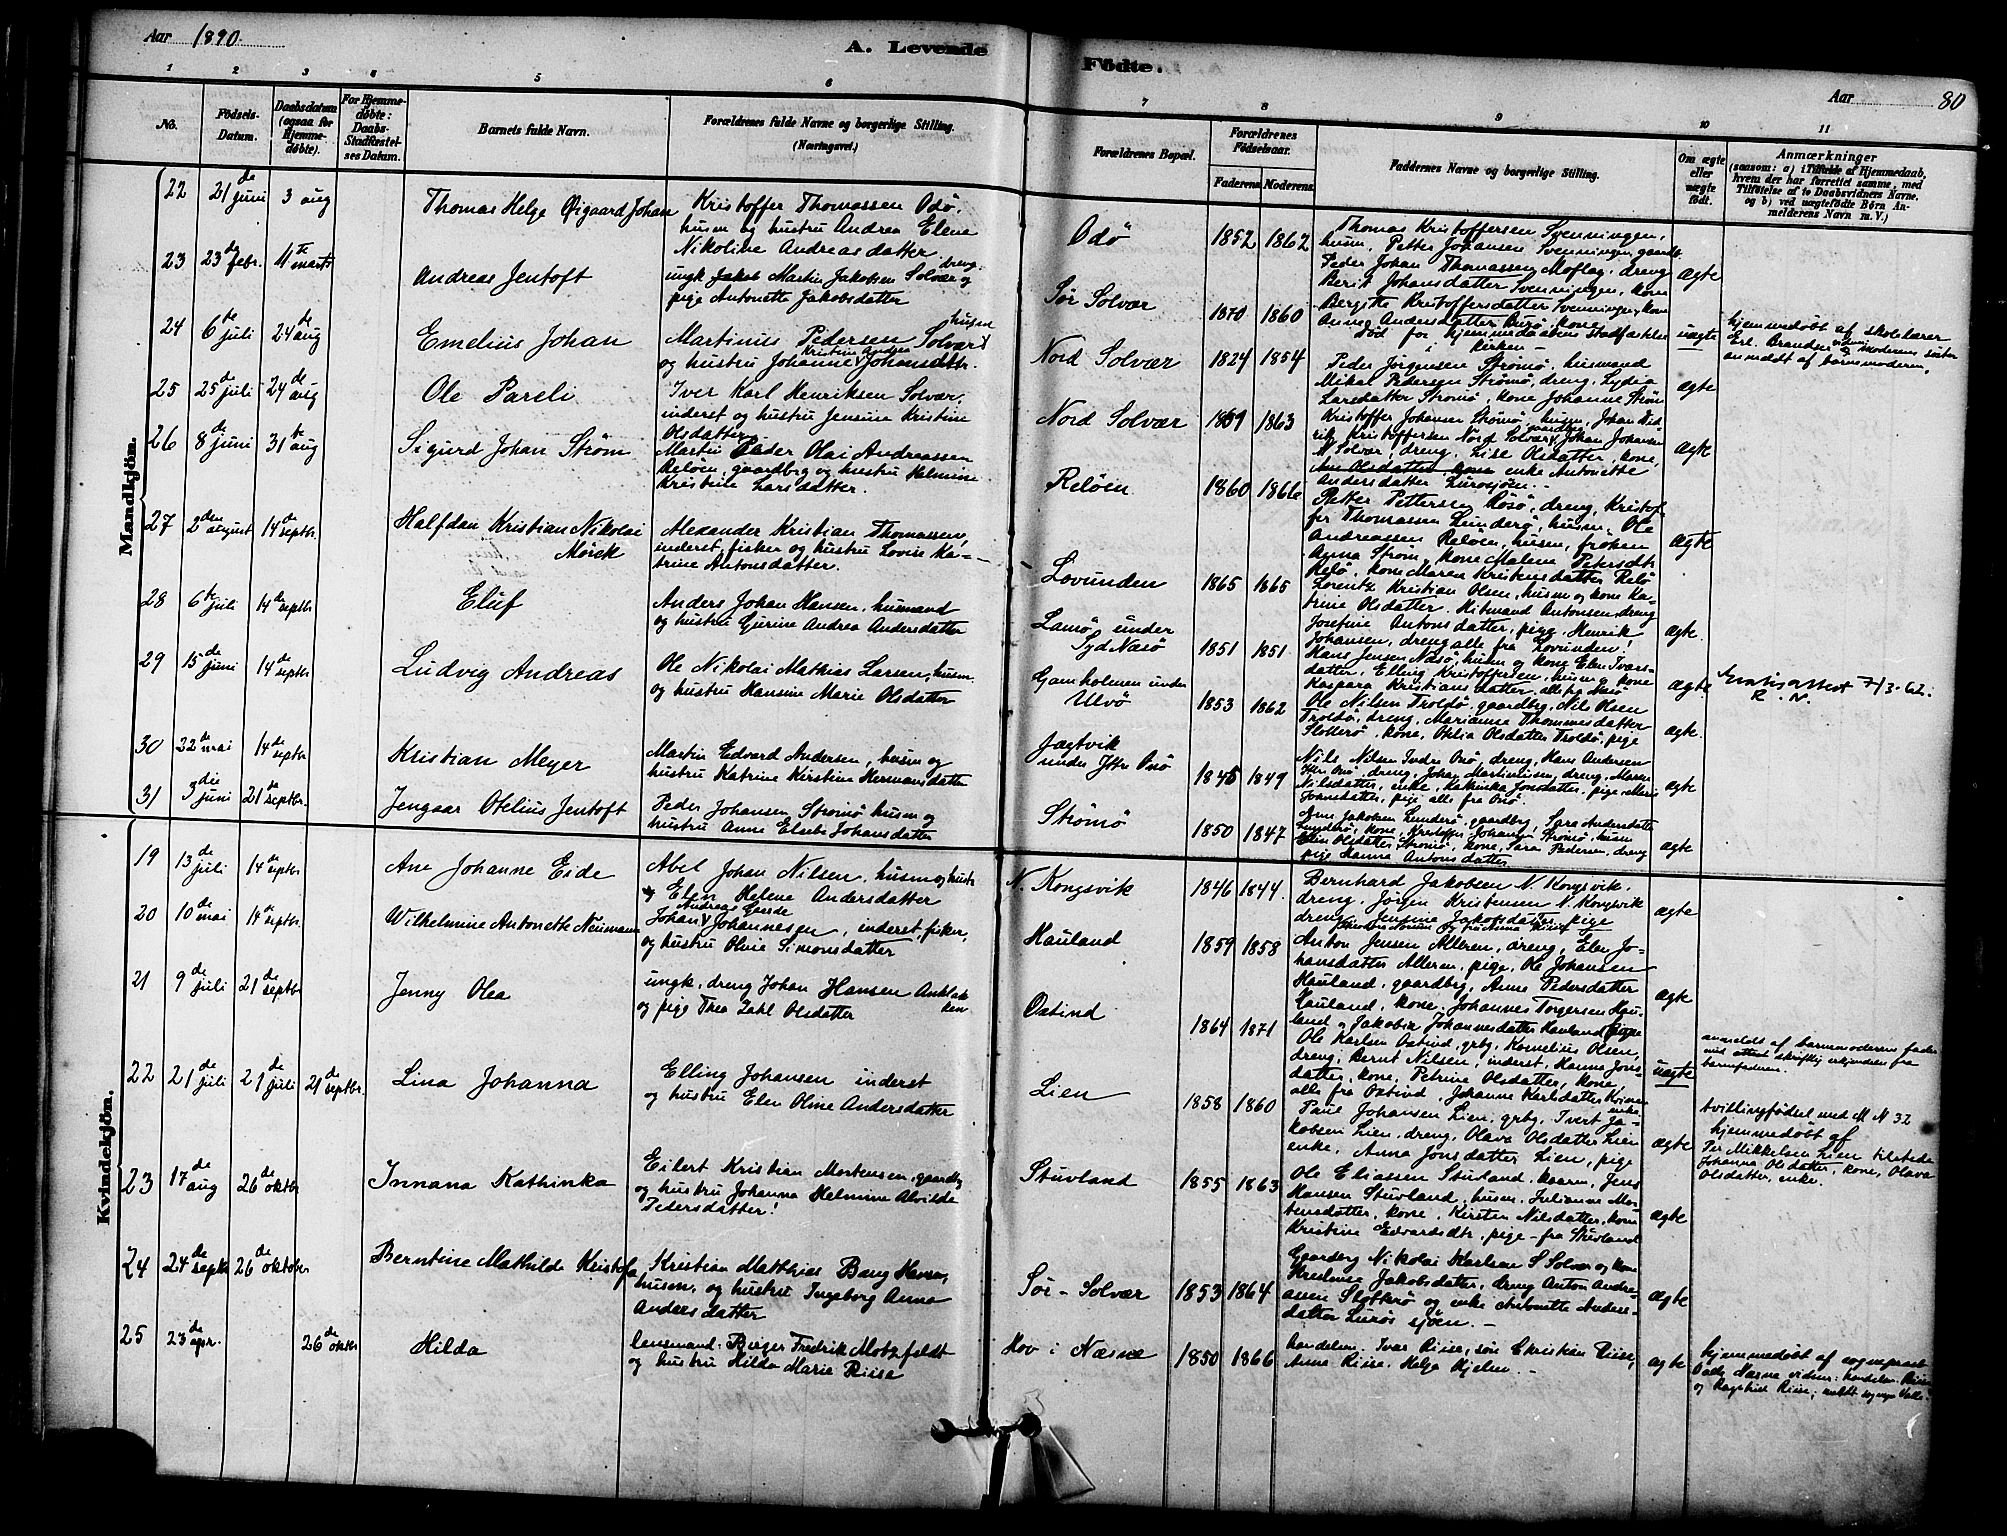 Aar 1890.
A. Levende Fødte.
Aar 80
1 2 3 4 5 6 7 8 9 10 11
No.
Fødsels-Datum.
Daabsdatum (ogsaa for Hjemmedøbte).
For Hjemmedøbte: Daabs-Stadfæstelses Datum.
Barnets fulde Navn.
Forældrenes fulde Navne og borgerlige Stilling.
(Næringsvei.)
Forældrenes Bopæl.
Forældrenes Fødselsaar.
Faderens. Moderens.
Faddernes Navne og borgerlige Stilling.
Om ægte eller uægte født.
Anmærkninger
(saasom: a) i Tilfælde af Hjemmedaab, hvem der har forrettet samme, med Tilføielse af to Daabsvidners Navne. og b) ved uægtefødte Børn Anmelderens Navn m. V.)
Mandkjøn.
22 21de juni 3 aug Thomas Helge Øigaard Johan
Kristoffer Thomassen Odø.
husm og hustru Andrea Elene
Nikoline Andreasdatter
Odø 1852 1862
Thomas Kristoffersen Svenningen,
husm, Petter Johansen Svenningen, gaardb
Peder Johan Thomassen Moflag, dreng
Berit Johansdatter Svenningen, kone
Bergitte Kristoffersdatter Svenningen, kone
Anna Andersdatter kone
ægte
23 23de febr. 11te marts Andreas Jentoft
ungk Jakob Martin Jakobsen Solvær og
pige Antonette Jakobsdatter
Sør Solvær 1870 1860
død før hjemmedaabens Stadfæstelse
i kirken
uægte
hjemmedøbt af skolelærer
Erl. Brandser
anmeldt af barnemoderen.
24 6te juli 24de aug Emelius Johan
Martinus Pedersen Solvær husm
og hustru Johanne Kristine Andrea Johansdttr.
Nord Solvær 1824 1854
Peder Jørgensen Strømø, husmand
Mikal Pedersen Strømø, dreng, Lydia
Larsdatter Strømø, kone Johanne Strøm
ægte
25 25de juli 24de aug Ole Pareli
Iver Karl Henriksen Solvær,
inderst og hustru Jensine Kristine
Olsdatter
Nord Solvær 1859 1863
Kristoffer Johansen Strømø, husm, Johan Did
rik Kristoffersen Nord Solvær, Johan Johansen
N Solvær, dreng, Lise Olsdatter, kone,
enke Antonette
Andersdatter Lurøsjøen. -
ægte
26 8de juni 31te aug Sigurd Johan Strøm
Martin Peder Olai Andreassen
Reløen, gaardbg og hustru Helmine
Kristine Larsdatter.
Reløen 1860 1866
Petter Pettersen Røsø, dreng, Kristof-
fer Thomassen Lunderø, husm, Ole
Andreassen Reløen, husm, frøken
Anna Strøm, kone Malene Petersdt
Relø, kone Maren Kristensdatter Relø
ægte
27 2den august 14de septbr Halfdan Kristian Nikolai
Mørck
Alexander Kristian Thomassen,
inderst, fisker og hustru Lovise Ka-
trine Antonsdatter.
Lovunden 1865 1865
Lorentz Kristian Olsen, husm og kone Ka-
trine Olsdatter. Hitmand Antonsen, dreng
Josefine Antonsdatter, pige, Henrik
Johansen, dreng alle fra Lovunden!
ægte.
28 6te juli 14de septbr Eluf
Anders Johan Hansen, husmand
og hustru Gjertine Andrea Andersdatter
Lamø, under
Syd Næsø
1851 1851
Hans Jensen Næsø, husm og kone Elen Ivars-
datter, Elling Kristoffersen, husm og kone
Kaspara Kristiansdatter, alle fra Næsø
ægte
Gratis attest 7/3-62.
R. N.
29 15de juni 14de septbr Ludvig Andreas
Ole Nikolai Mathias Larsen, husm.
og hustru Hansine Marie Olsdatter
Gamholmen under
Ulvø
1853 1862
Ole Nilsen Troldø, gaardbg, Nils Olsen
Troldø, dreng, Marianne Thommesdatter
Slotterø, kone, Otelia Olsdatter Troldø, pige
ægte.
30 22de mai 14de septbr Kristian Meyer
Martin Edvard Andersen, husm og
hustru Katrine Kirstine Hermansdatter
Jægtvik
under Jttr. Onø
1845 1849
Nils Nilsen Indre Onø, dreng, Hans Andersen
Ittr. Onø, dreng, Johan Martinussen, dreng, Maren
Nilsdatter, enke, Katrinka Jonsdatter, pige, Marie
Johnsdatter, pige alle fra Onø.
ægte
31 3die juni 21de septbr. Jengaar Otelius Jentoft
Peder Johansen Strømø husm og
hustru Anne Elsebe Johansdatter
Strømø 1850 1847
Jakobsen Lunderø, gaardbg, Sara Andersdatter
Lunderø, kone, Kristoffer Johansen Strømø, husm
Elen Olsdatter, Strømø, kone, Sara Pedersen, dreng
pige Hanna Antonsdatter
ægte
Kvindekjøn.
19 13de juli 14de septbr Ane Johanne Eide
Abel Johan Nilsen, husm og hustr
Elen Helene Andersdatter
N. Kongsvik 1846 1844.
Bernhard Jakobsen N. Kongsvik.
dreng, Jørgen Kristensen N. Kongsvik
dreng, Jensine Jakobsdatter, pige
ægte
20 10de mai 14de septbr Wilhelmine Antonette Neumann
Johan Andreas Gerde Johannesen, inderst, fisker,
og hustru Oline Simonsdatter
Hauland 1859 1858
Anton Jensen Alleren, dreng, Elen Jo-
hansdatter Alleren, pige, Ole Johansen
Hauland, gaardbg, Anne Pedersdatter
Hauland, kone, Johannes Torgersen Hau-
land og Jakobia Johannesdatter Hauland pige
ægte
21 9de juli 21de septbr Jenny Olea
ungk, dreng Johan Hansen Anklak
ken
og pige Thea Zahl Olsdatter
Oxtind 1864 1871
Ole Karlsen Oxtind, grbg, Kornelius Olsen,
dreng, Bernt Nilsen, inderst, Hanna Jons-
datter, kone, Petrine Olsdatter, kone,
alle fra Oxtind, Johanne Karlsdatter
enke
uægte
anmeldt af barnemoderens fader
med attest skriftlig erkjendelse fra
barnefaderen.
22 21de juli 21de juli 21de septbr. Lina Johanna
Elling Johansen inderst
og hustru Elen Oline Andersdatter
Lien 1858 1860
Paul Johansen Lien, grbg, Ivert Ja-
kobsen Lien, dreng, Olava Olsdatter Lien
enke, Anna Jonsdatter Lien, pige
ægte
tvillingfødsel med M N 32
hjemmedøbt af
Per Mikkelsen Lien tilstede
Johanna Olsdatter, kone, Olava
Olsdatter, enke.
23 17de aug 26de oktbr Innana Kathinka
Eilert Kristian Mortensen, gaardbg
og hustru Johanna Helmine Alvilde
Pedersdatter!
Stuvland 1855 1863
Ole Eliassen Stuvland, kaarm, Jens
Hansen Stuvland, husm, Julianne Mor-
tensdatter, kone, Kirsten Nilsdatter, kone
Kristine Edvardsdtr, pige - fra Stuvland
ægte
24 24de septr 26de oktober Berntine Mathilde Kristofa
Kristian Matthias Bang Hansen,
husm. og hustru Ingeborg Anna
Andersdatter
Sør-Solvær 1853 1864
Gaardbg Nikolai Karlsen S Solvær og kone
Jakobsdatter, dreng Anton Andre-
asen Slotterø og enke Antonette Anders-
datter Lurøsjøen. -
ægte
25 23de apr. 26de oktbr Hilda
lensmand. Birger Fredrik Motzfeldt
og hustru Hilda Marie Riise
Hov i Næsne 1850 1866
handelsm. Ivar Riise, søn Christian Riise,
Anna Riise, Helga Hjelm. -
ægte
hjemmedøbt af sogneprest
Næsne vidner: handelsm. Riise
og Ragnhild Riise;